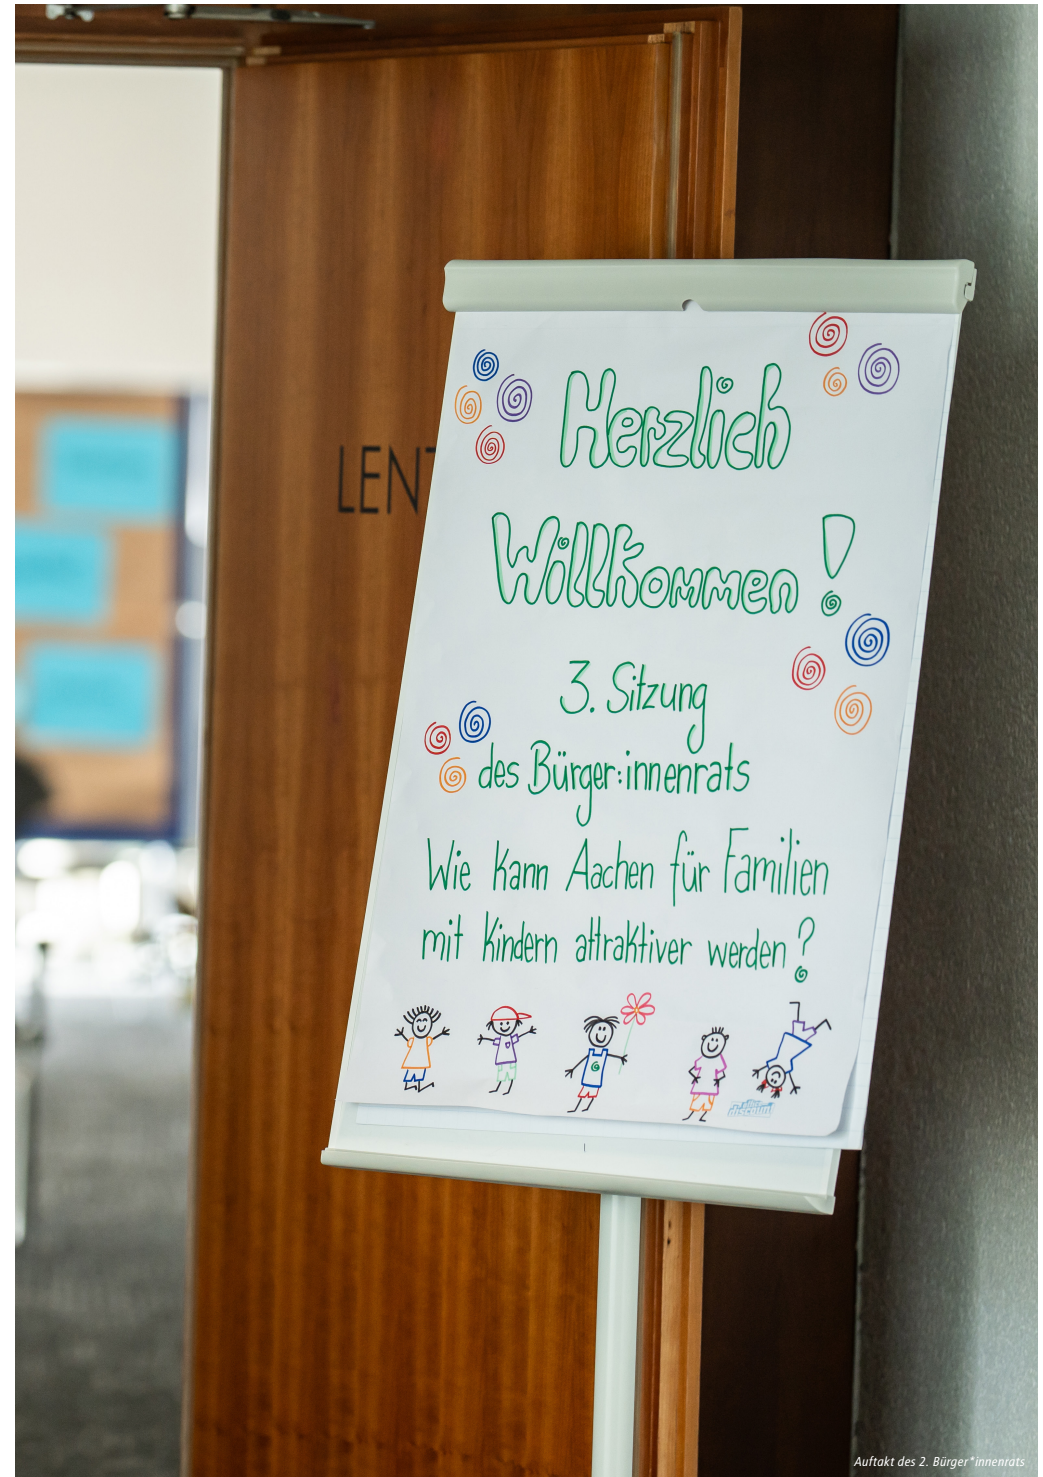 LENT
Herzlich
Willkommen!
3. Sitzung
des Bürger:innenrats
Wie kann Aachen für Familien
mit Kindern attraktiver werden?
discount
Auftakt des 2. Bürger*innenrats